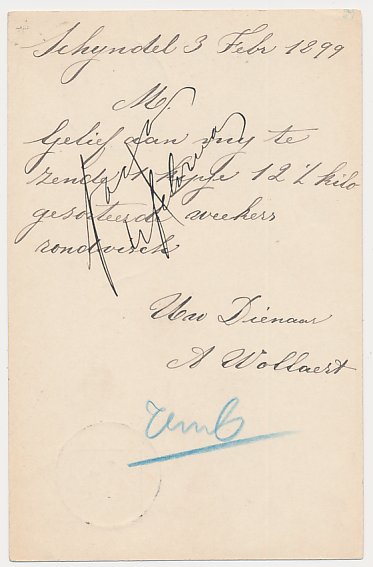 Schyndel 3 Febr 1899
M,
Gelief aan my te
zende 1 kopje 12 ½ kilo
gesorteerde weekers
rondvisch
Uw Dienaar
A Wollaert